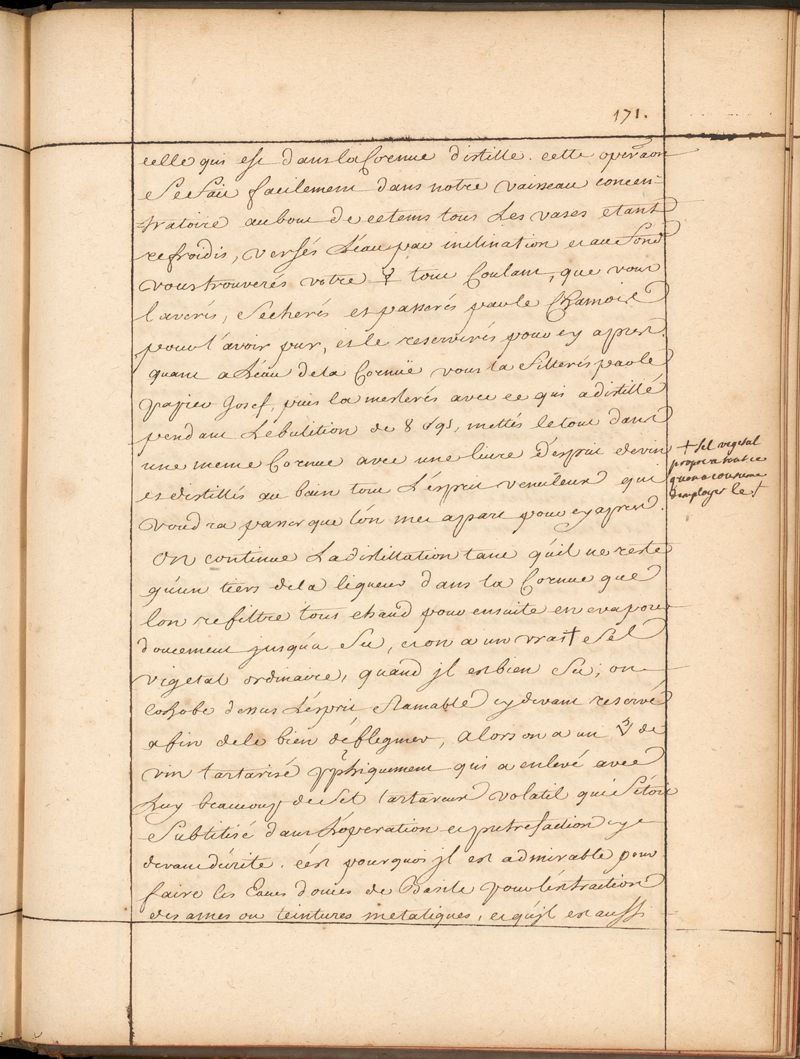 171.
celle qui est dans la Cornue distille. cette opera͠on
se fait facilement dans notre vaisseau concen-
tratoire au bout de ce tems tous Les vases etant
refroidis, versés L'éau par inclination et au fond
vous trouverés votre ☿ tout Coulant, que vous
laverés, secherés et passerés par le Chamois
pour l'avoir pur, et le reserverés pour cy apres.
quant a L'éau de la Cornuë vous la filtrerés par le
papier Josef, puis la meslerés avec ce qui a distillé
pendant L'ebulition de 8 jrs, mettés le tout dans
une meme Cornue avec une livre d'esprit de vin
et distillés au bain tout L'esprit venteleux qui
voudra passer que l'on met apart pour cy apres.
On continue La distillation tant qu'il ne reste
qu'un tiers de la liqueur dans la Cornue que
lon refiltre tous chaud pour ensuite en evaporer
doucement jusqu'a sec, et on a un vrai + sel
vegetal ordinaire, quand jl est bien sec, on
cohobe dessus L'esprit flamable cy devant reservé
afin de le bien déflegmer, alors on a un de
vin tartarisé qui a enlevé avec
Luy beaucoup de sel tartareux volatil qui s'étoit
subtilisé dans L'operation et putrefaction cy
devant décrite. c'est pourquoi jl est admirable pour
faire les Eaues douces de Basile pour l'éxtraction
des ames ou teintures metaliques, et qu'jl est aussi
+ sel vegetal
propre a tout ce
qu'on a coutume
d'employer le.+